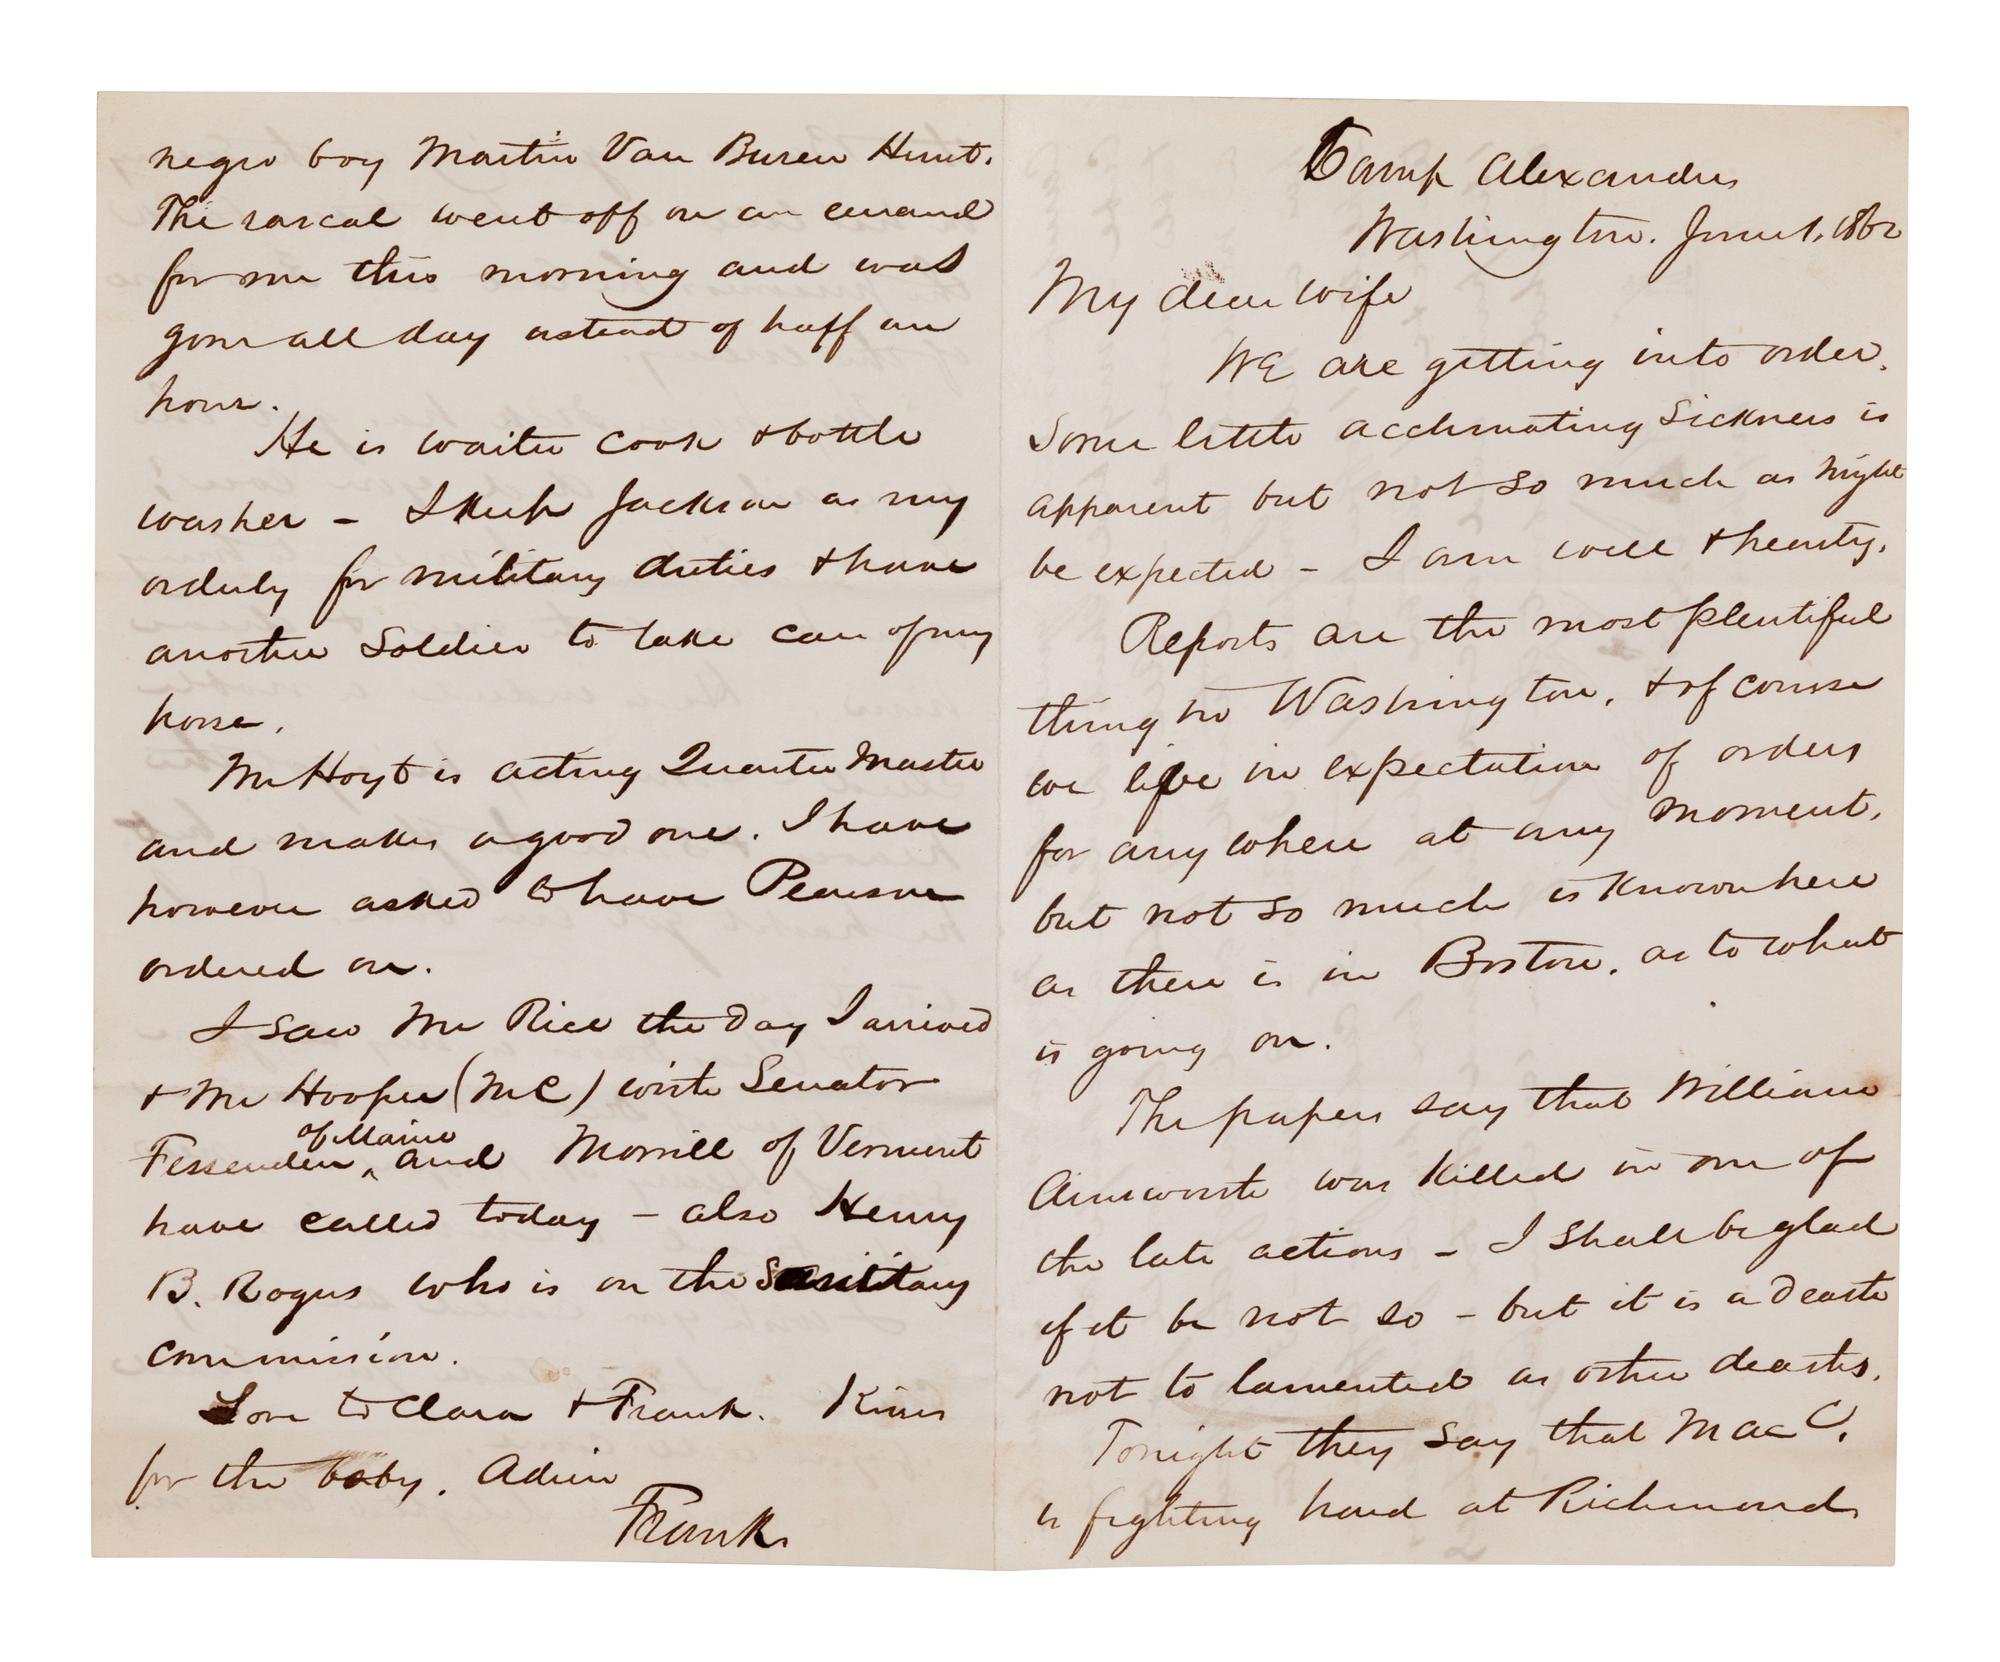 Camp Alexander
Washington. June 1, 1862
My dear wife
We are getting into order.
Some little acclimating sickness is
apparent but not so much as might
be expected – I am well & hearty.
Reports are the most plentiful
thing in Washington, & of course
we live in expectation of orders
for anywhere at any moment,
but not so much is known here
as there is in Boston, as to what
is going on.
The papers say that William
Ainsworth was killed in one of
the late actions – I shall be glad
if it be not so – but it is a death
not to lamented as other deaths.
Tonight they say that Mac C.
is fighting hard at Richmond
negro boy Martin Van Buren Hunt.
The rascal went off on an errand
for me this morning and was
gone all day instead of half an
hour.
He is waiter cook & bottle
washer – I keep Jackson as my
orderly for military duties & have
another soldier to take care of my
horse.
Mr Hoyt is acting Quarter Master
and makes a good one. I have
however asked to have Pearson
ordered on.
I saw Mr Rice the day I arrived
& Mr Hooper (MC) with Senator
Fessenden of Maine and Morrill of Vermont
have called today – also Henry
B. Rogers who is on the sanitary
commission.
Love to Clara & Frank. Kisses
for the baby. Adieu
Frank